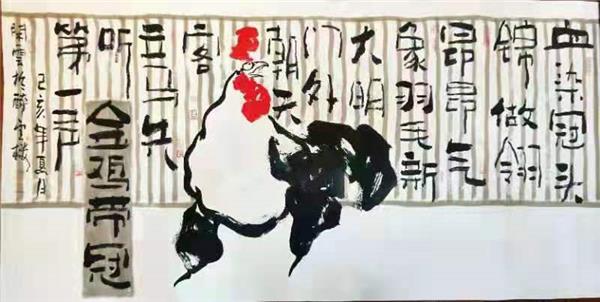 血染冠头
锦做翎
昂昂气
象羽毛新
大明
门外
朝天
客
立马先
听
第一声
金鸡带冠
己亥年夏月
閑雲於醉雲樓